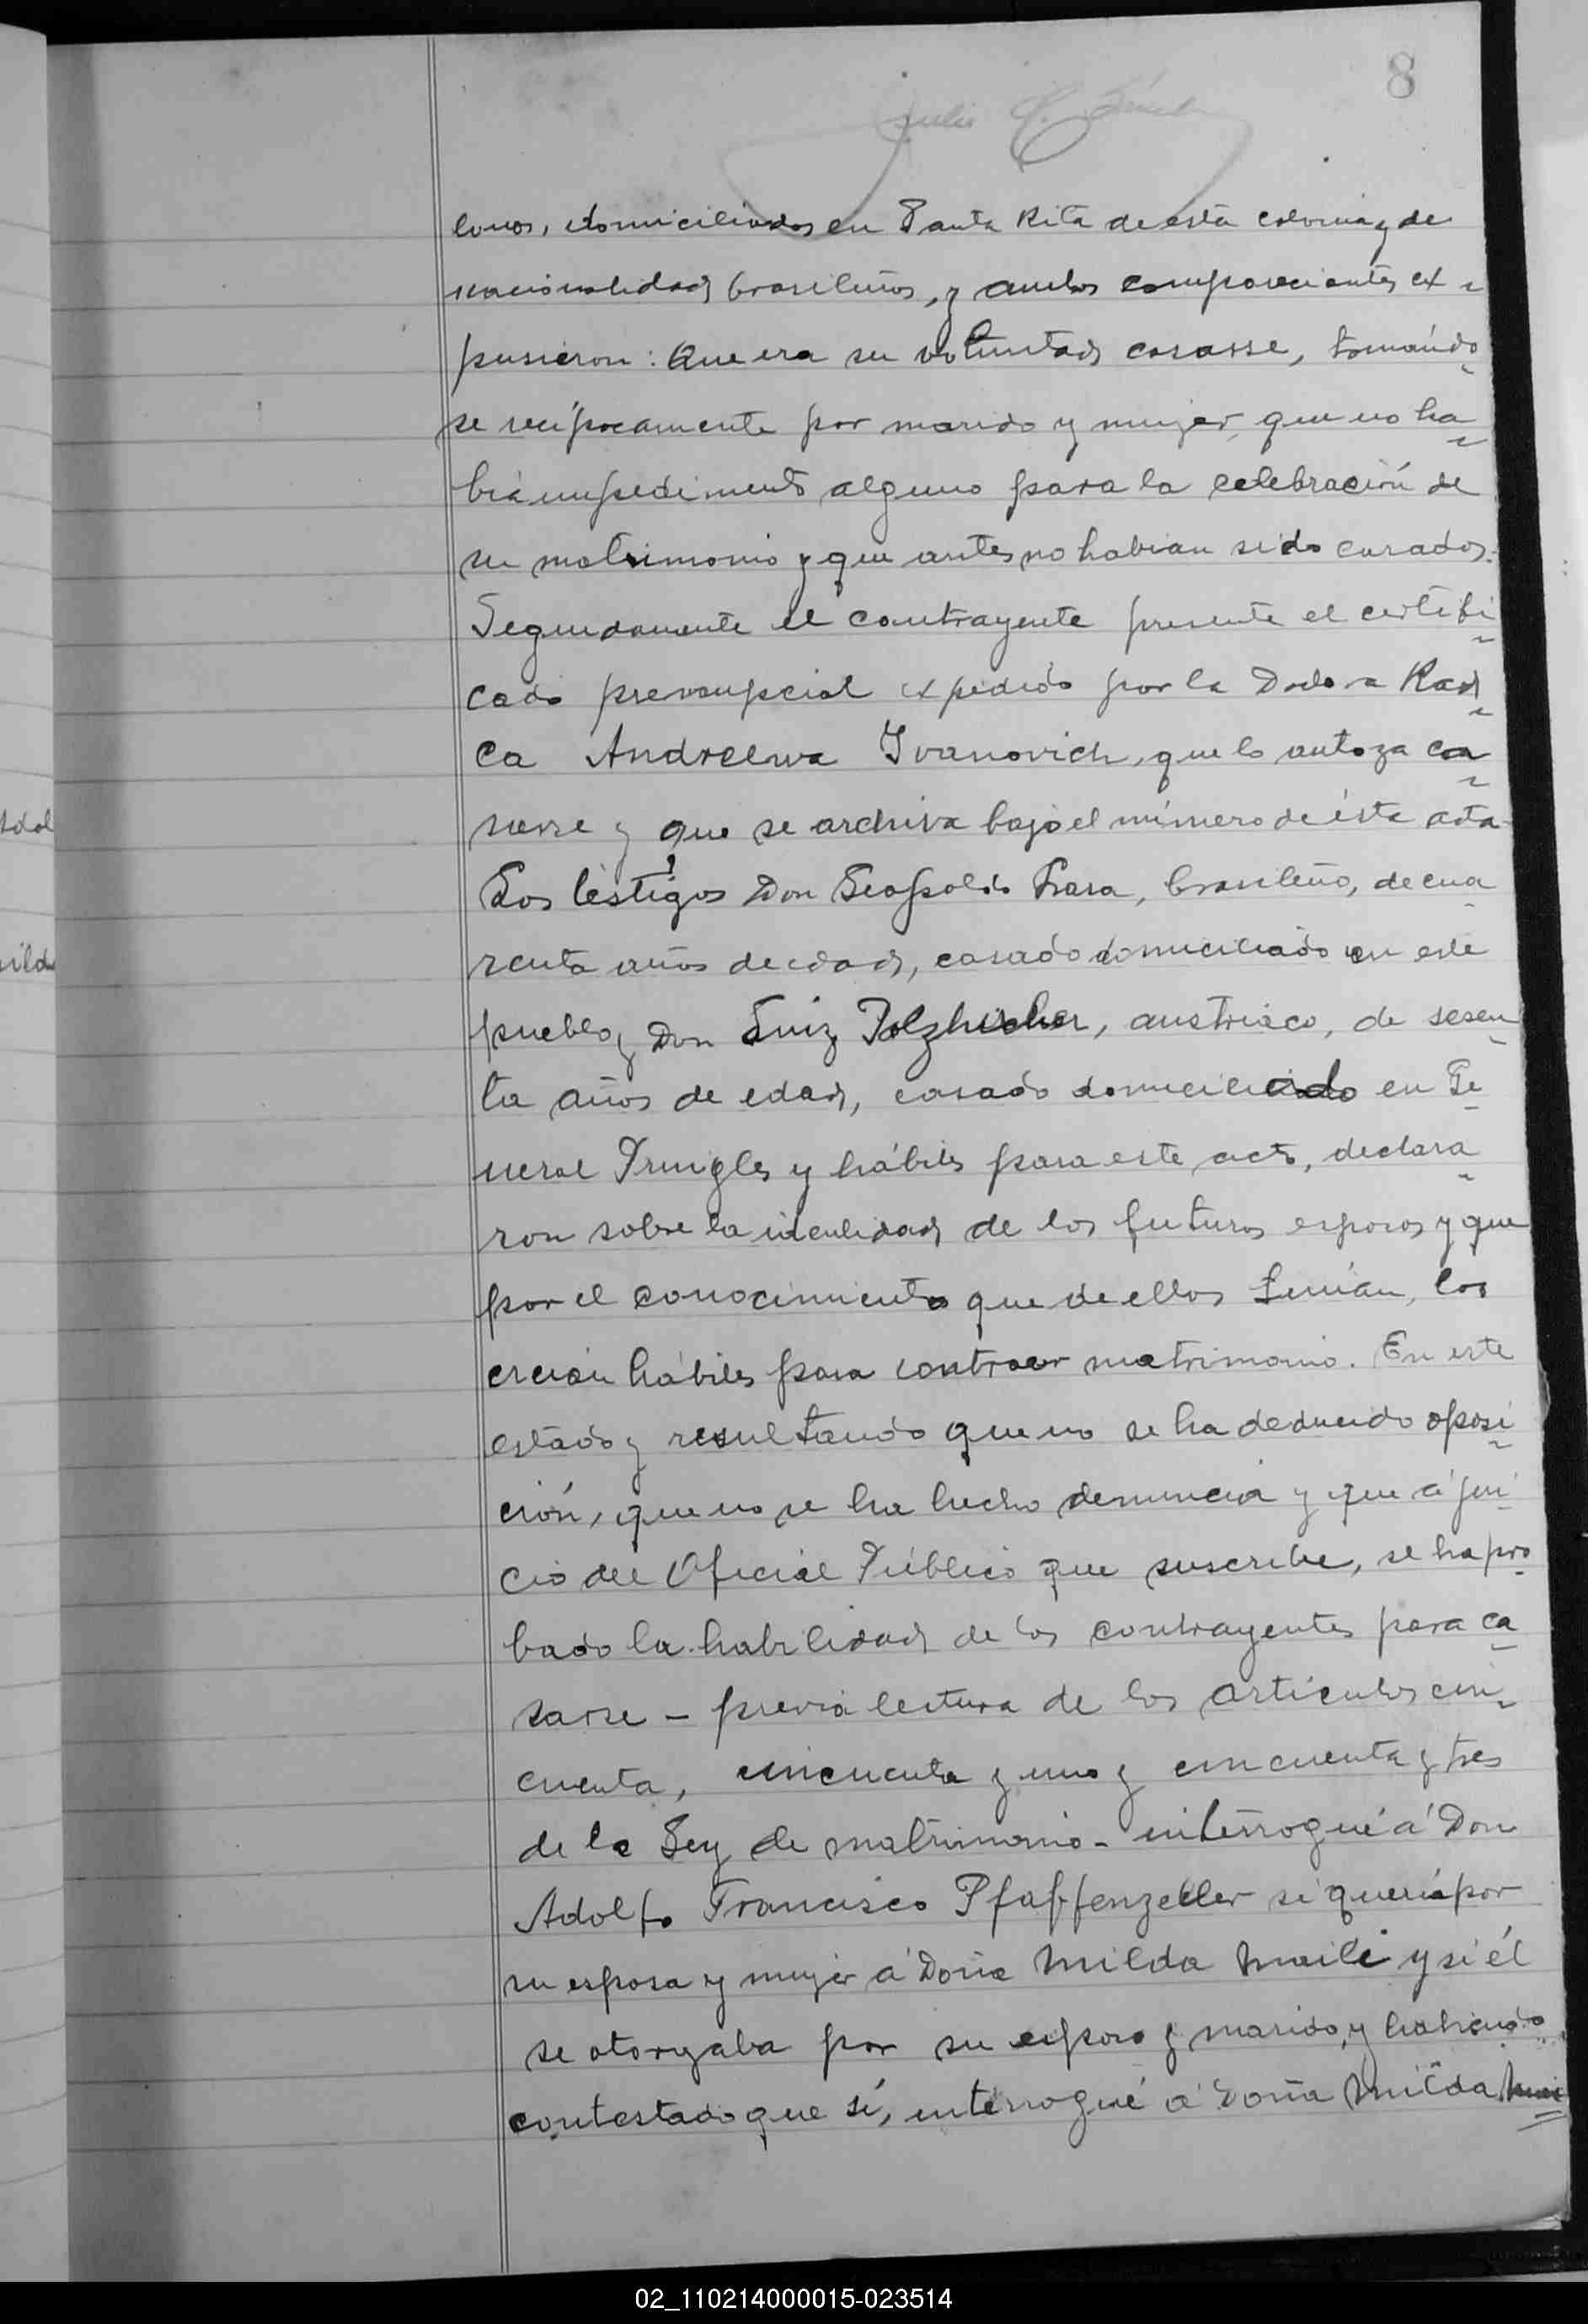 8
Julio C.
lonos, domiciliados en Santa Rita de esta colonia y de
nacionalidad brasileños, y ambos comparecientes ex-
pusieron: Que era su voluntad casarse, tomándo-
se recíprocamente por marido y mujer, que no ha-
bía impedimento alguno para la celebración de
su matrimonio y que antes no habian sido casados.
Seguidamente el contrayente presente el certifi-
cado prenupcial expedido por la Doctora Rad-
ca Andreewa Ivanovich, que lo autoza ca-
sarse y que se archiva bajo el número de ésta acta
Los testigos Don Leopoldo Frara, brasileño, de cua-
renta años de edad, casado domiciliado en este
pueblo y Don Luiz Polzhircher, austriaco, de sesen-
ta años de edad, casado domiciliado en Ge-
neral Pringles y hábiles para este acto, declara-
ron sobre la identidad de los futuros esposos y que
por el conocimiento que de ellos tenían, los
creían hábiles para contraer matrimonio. En este
estado y resultando que no se ha deducido oposi-
ción, que no se ha hecho denuncia y que á jui-
cio del Oficial Público que suscribe, se ha pro-
bado la habilidad de los contrayentes para ca-
sarse - previa lectura de los artículos cin-
cuenta, cincuenta y uno y cincuenta y tres
de la Ley de matrimonio - interrogué á Don
Adolfo Francisco Pfaffenzeller si quería por
su esposa y mujer á Doña Milda Maili y si él
se otorgaba por su esposo y marido, y habiendo
contestado que sí, interrogué á Doña Milda Mai
02_110214000015-023514